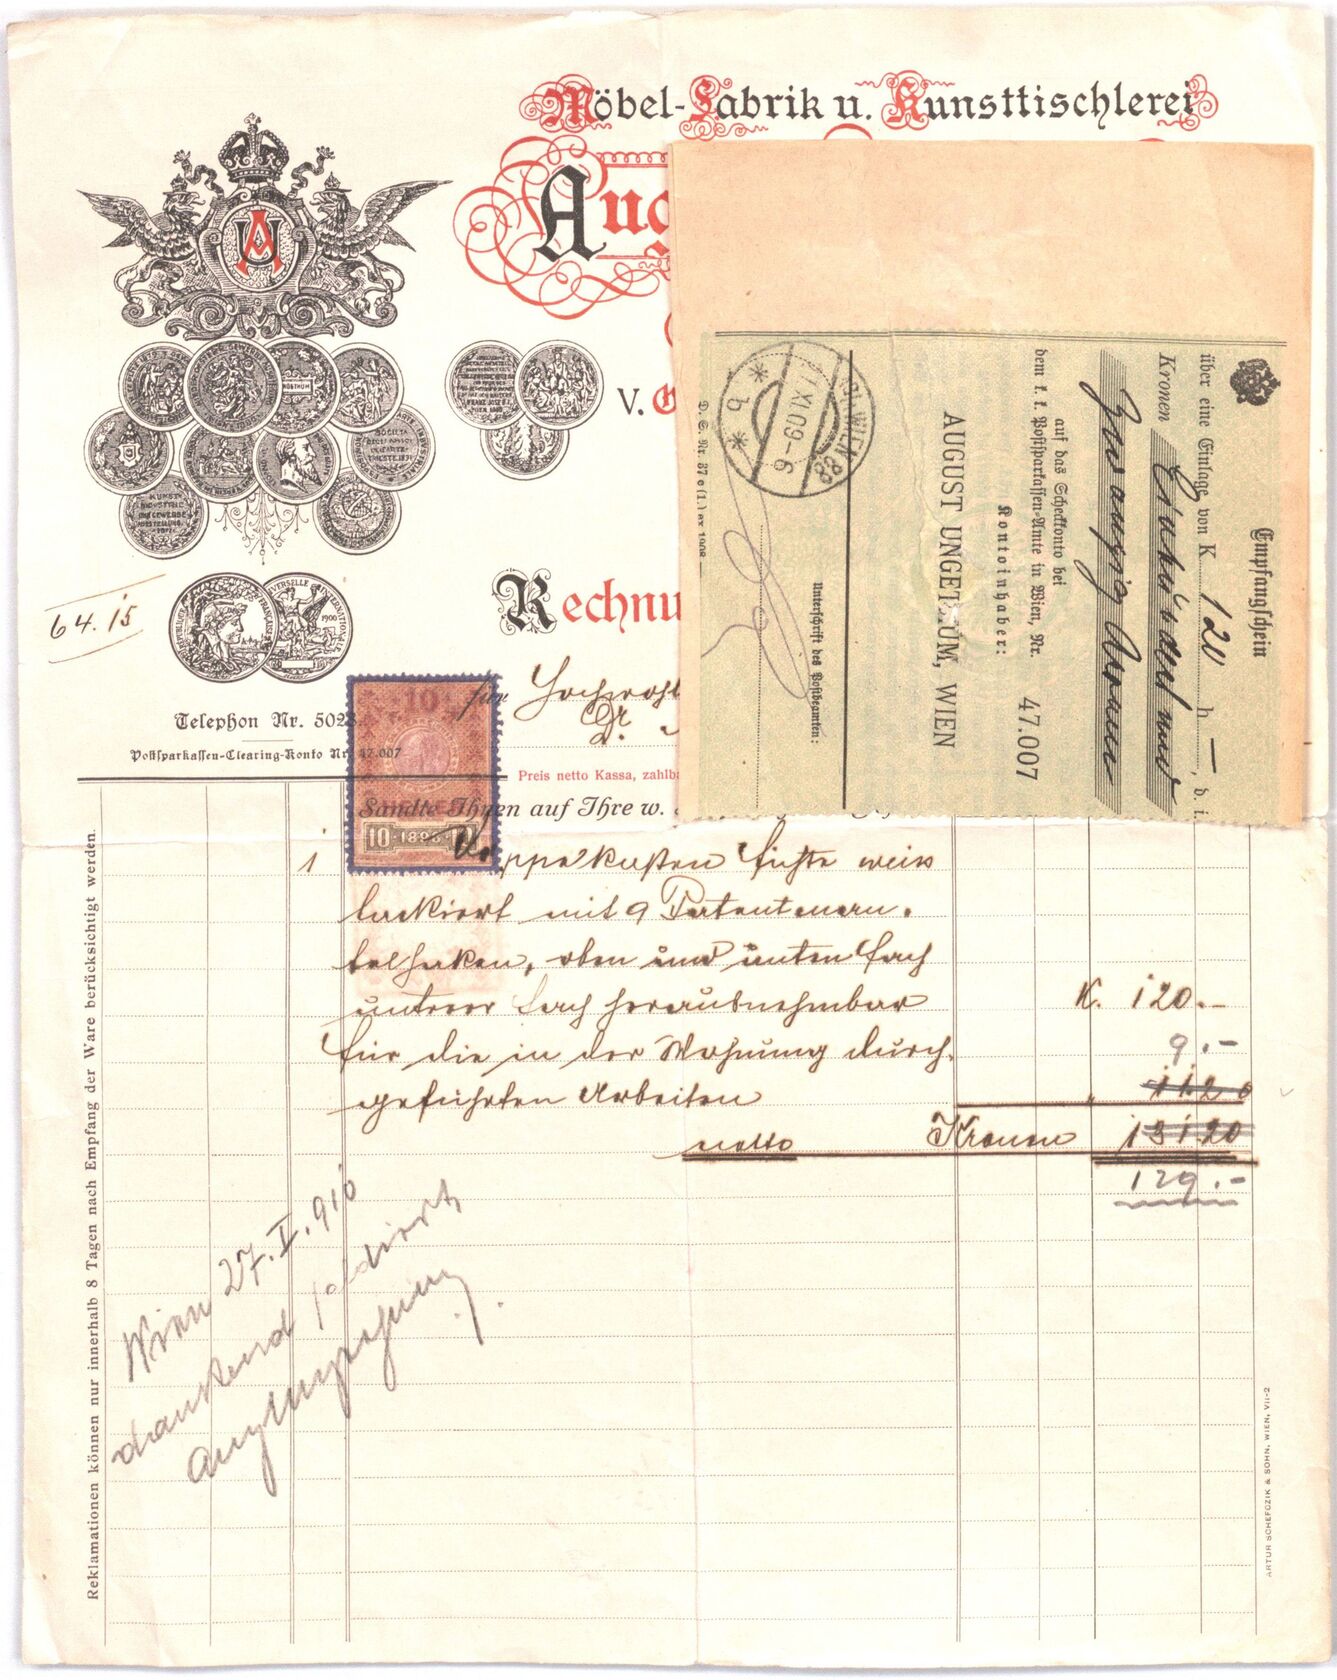 Möbel-Fabrik u. Kunsttischlerei
Aug
V.
Rechnu
64.15
Telephon Nr. 502
Postsparkassen-Clearing-Konto Nr. 47.007
für Hochwohl
Dr.
Preis netto Kassa, zahlba
Sandte Ihnen auf Ihre w.
1 Klappekasten Fichte weiss
lackiert mit 9 Patent
haken, oben und unten Fach
unterer Fach herausnehmbar K. 120.-
für die in der Wohnung durch- 9.-
geführten Arbeiten 11.20
netto Kronen 131.20
129.-
Wien 27. I. 910
dankend saldiert
Aug Ungethüm
Reklamationen können nur innerhalb 8 Tagen nach Empfang der Ware berücksichtigt werden.
ARTUR SCHEFCZIK & SOHN, WIEN, VII-2
10
10 · 1898 · 10
Empfangschein
über eine Einlage von K 120 h —, d. i.
Kronen Einhundertund
Zwanzig Kronen
auf das Scheckkonto bei
dem k. k. Postsparkassen-Amte in Wien, Nr. 47.007
Kontoinhaber:
AUGUST UNGETHUM, WIEN
Unterschrift des Postbeamten:
WIEN 88
XI.09-6
b
D. S. Nr. 37 e (I.) ex 1908.